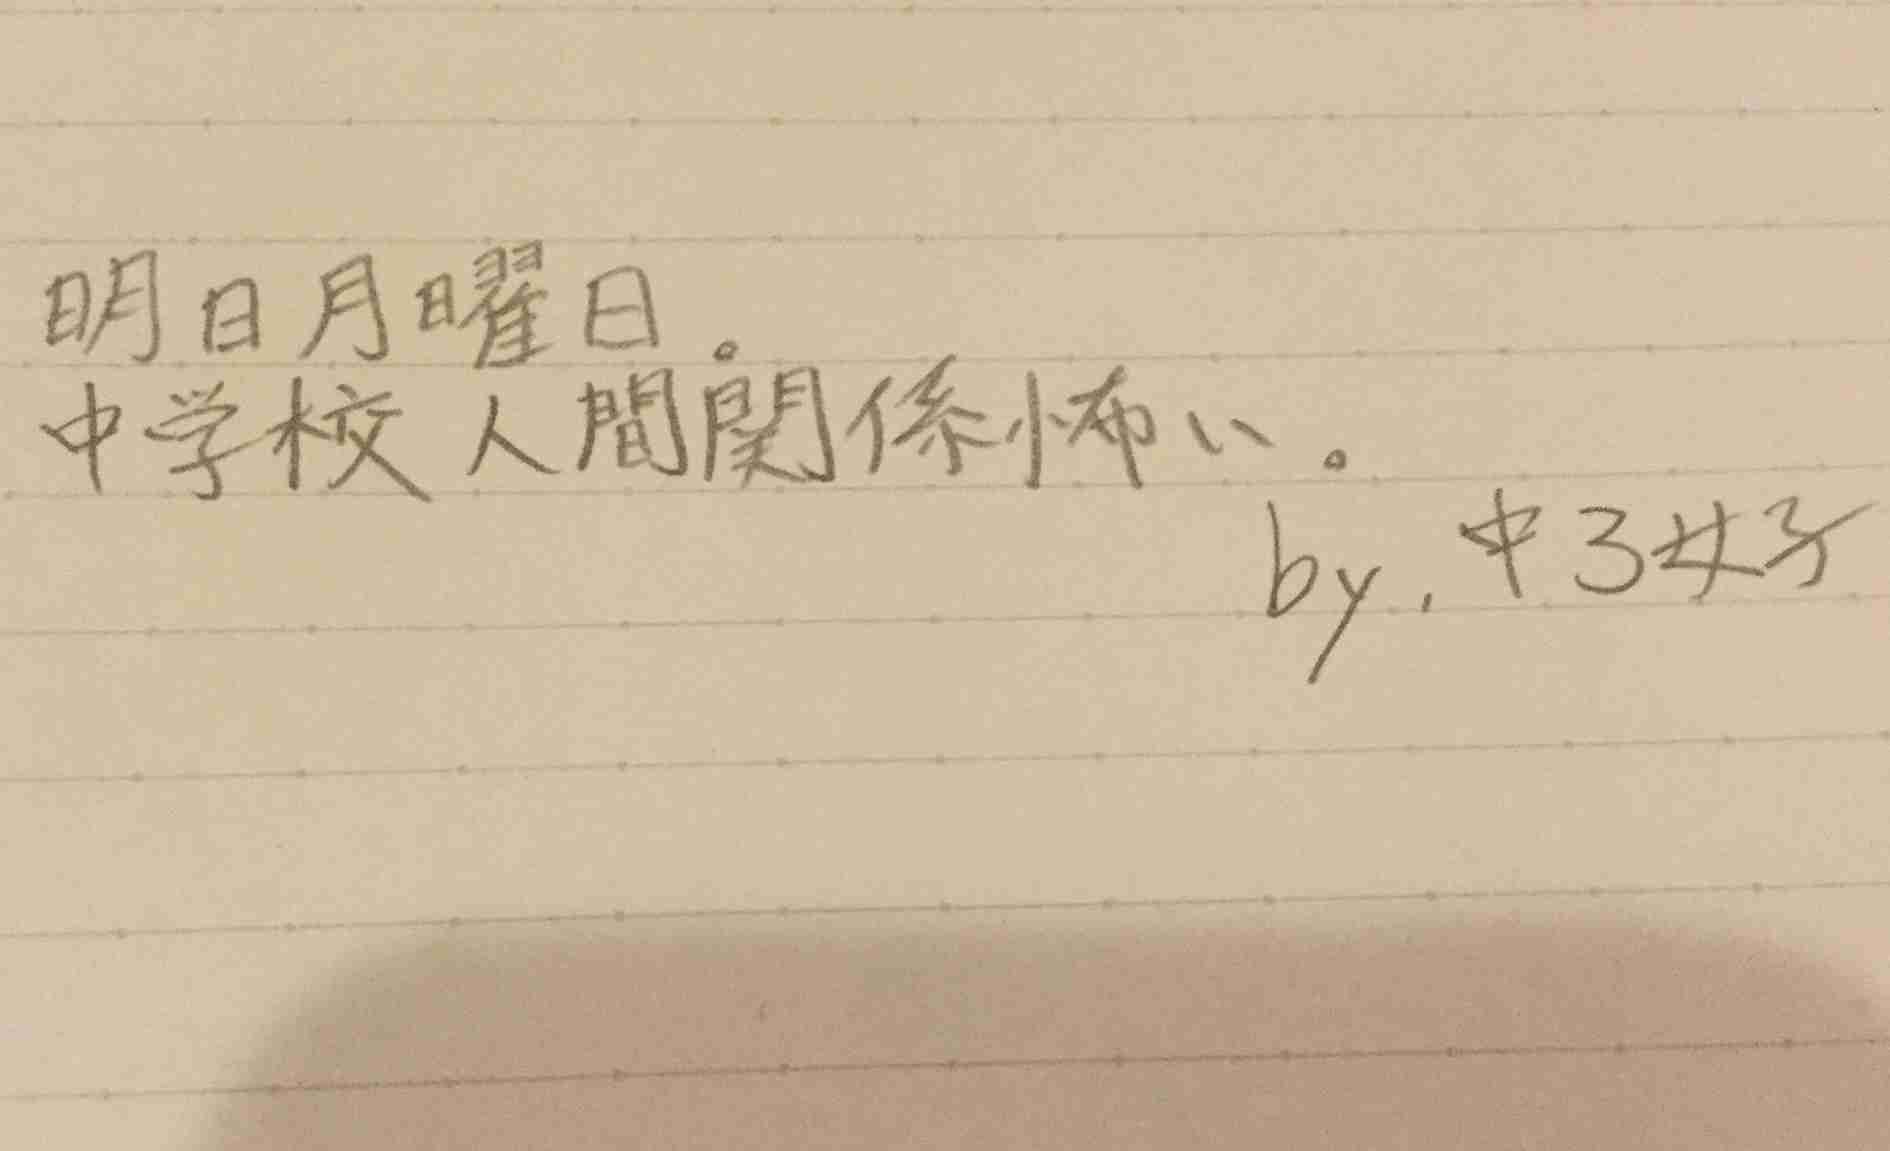 明日月曜日。
中学校人間関係怖い。
by.中3女子